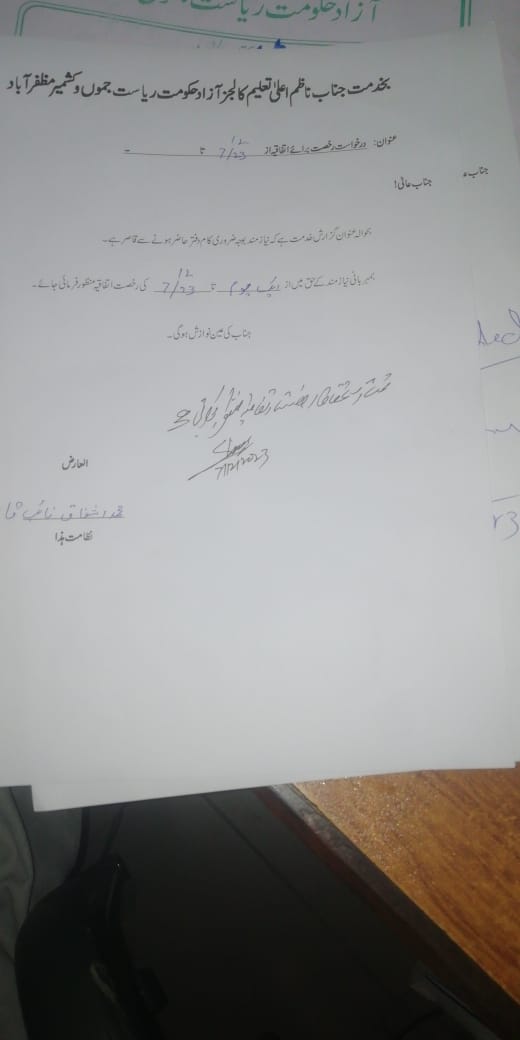 آزاد حکومت ریاست
بخدمت جناب ناظم اعلیٰ تعلیم کالجز آزاد حکومت ریاست جموں و کشمیر مظفر آباد
عنوان: درخواست رخصت برائے اتفاقیہ از 7/12/23 تا ۔
جناب ء
جناب عالی!
بحوالہ عنوان گزارش خدمت ہے کہ نیاز مند بوجہ ضروری کام دفتر حاضر ہونے سے قاصر ہے۔
بمہربانی نیاز مند کے حق میں از ایک یوم تا 7/12/23 کی رخصت اتفاقیہ منظور فرمائی جائے۔
جناب کی عین نوازش ہوگی۔
رخصت اتفاقیہ
7/12/2023
العارض
محمد اشفاق نائب
نظامت ہذا